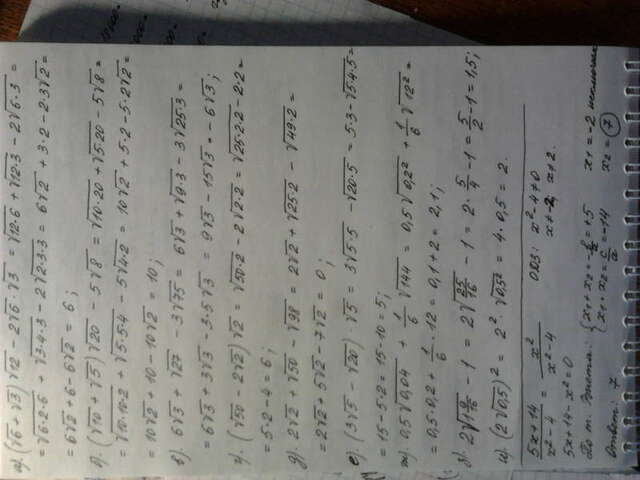 а). (√6 + √3)√12 - 2√6·√3 = √12·6 + √12·3 - 2√6·3 =
= √6·2·6 + √3·4·3 - 2√2·3·3 = 6√2 + 3·2 - 2·3√2 =
= 6√2 + 6 - 6√2 = 6;
б). (√10 + √5)√20 - 5√8 = √10·20 + √5·20 - 5√8 =
= √10·10·2 + √5·5·4 - 5√4·2 = 10√2 + 5·2 - 5·2√2 =
= 10√2 + 10 - 10√2 = 10;
в). 6√3 + √27 - 3√75 = 6√3 + √9·3 - 3√25·3 =
= 6√3 + 3√3 - 3·5√3 = 9√3 - 15√3 = -6√3;
г). (√50 - 2√2)√2 = √50·2 - 2√2·2 = √25·2·2 - 2·2 =
= 5·2 - 4 = 6;
д). 2√2 + √50 - √98 = 2√2 + √25·2 - √49·2 =
= 2√2 + 5√2 - 7√2 = 0;
е). (3√5 - √20)·√5 = 3√5·5 - √20·5 = 5·3 - √5·4·5 =
= 15 - 5·2 = 15 - 10 = 5;
ж). 0,5√0,04 + 1/6 √144 = 0,5√0,2² + 1/6 √12² =
= 0,5·0,2 + 1/6·12 = 0,1 + 2 = 2,1;
з). - 1 = 2√25/16 - 1 = 2·5/4 - 1 = 5/2 - 1 = 1,5;
и). (2√0,5)² = 2²·√0,5² = 4·0,5 = 2.
5x+14/x²-4 = x²/x²-4 ОДЗ: x²-4≠0
5x + 14 - x² = 0 x≠-2, x≠2.
По т. Виета: x₁ = -2
x₂ = 7
Ответ: 7